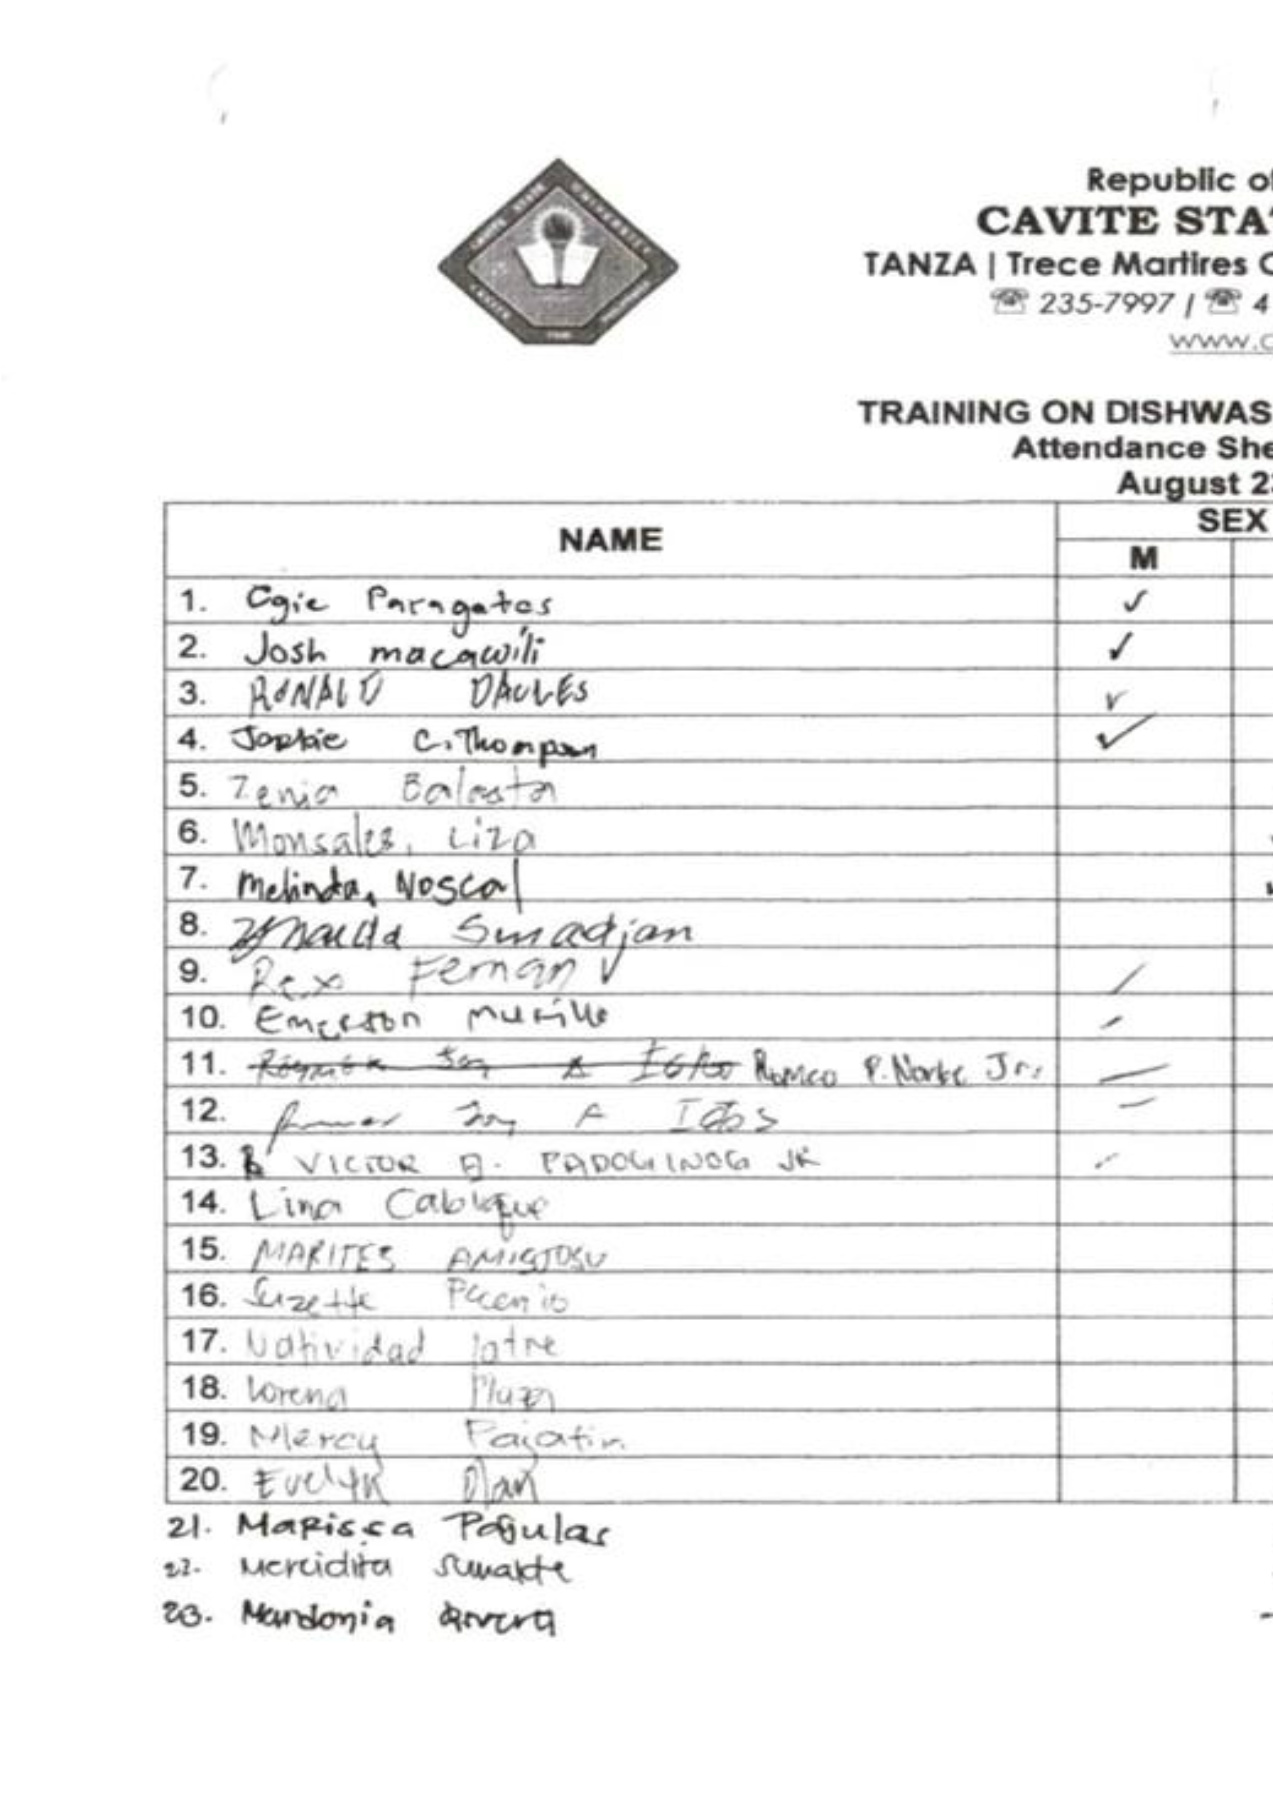 Republic of
CAVITE STA
TANZA | Trece Martires C
☏ 235-7997 | ☏ 4
www.c
TRAINING ON DISHWAS
Attendance She
August 2
NAME
SEX
M
1. Paragatos ✓
2. Josh macawili ✓
3. RONALD DAULES ✓
4. C. Thompson ✓
5. Zenia Balasta
6. Monsales, Liza
7. Melinda, Noscal
8. Sumadjan
9. Rex Fernan
10. Emerson Murillo
11. Romeo P. Norbe Jr.
12.
13. VICTOR PADOGINOG JR
14. Lina
15. MARITES AMISTOSO
16. Suzette
17. Natividad
18. Lorena
19. Mercy Pajatin
20. Evelyn Olan
21. Marissa Pagulas
22. Mercidita
23. Mandonia